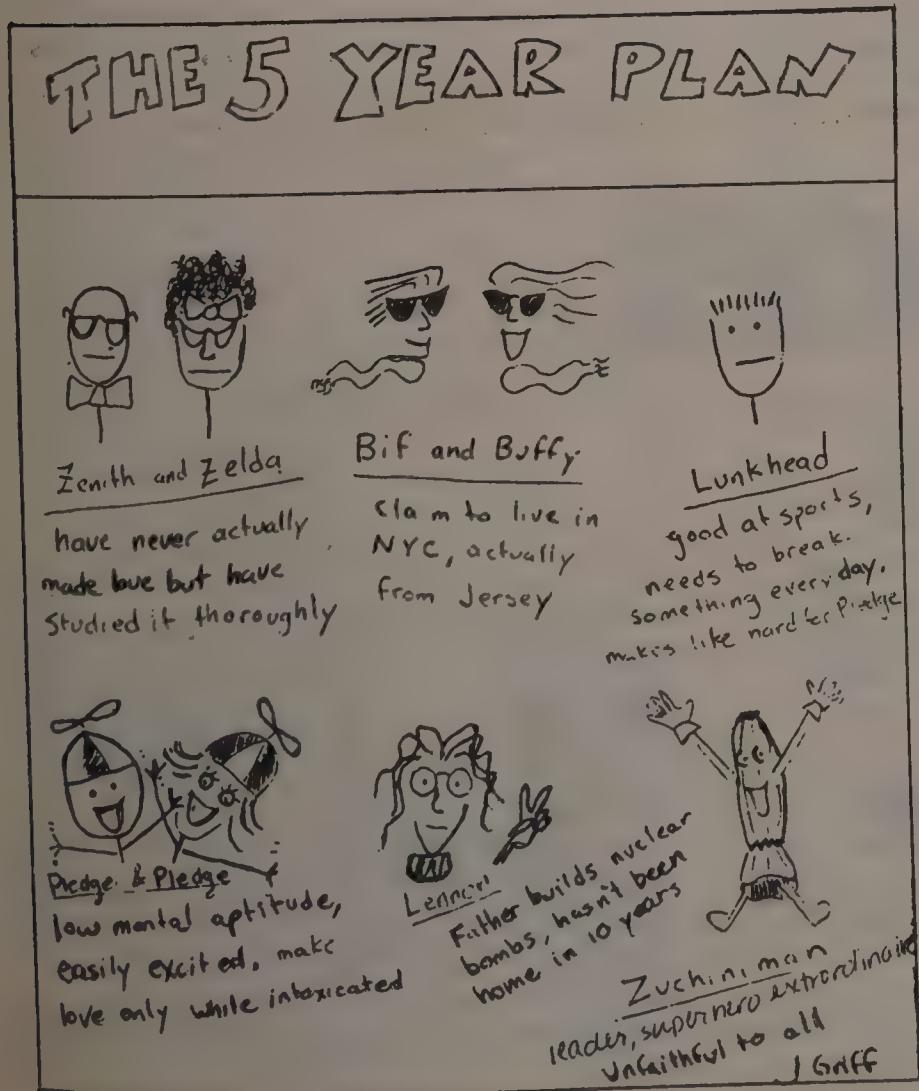 THE 5 YEAR PLAN
Zenith and Zelda
have never actually
made love but have
studied it thoroughly
Bif and Buffy
claim to live in
NYC, actually
from Jersey
Lunkhead
good at sports,
needs to break
something every day.
makes like hard for Pledge
Pledge & Pledge
low mental aptitude,
easily excited, make
love only while intoxicated
Lennon
Father builds nuclear
bombs, hasn't been
home in 10 years
Zuchiniman
leader, superhero extrordinaire
unfaithful to all
J Griff